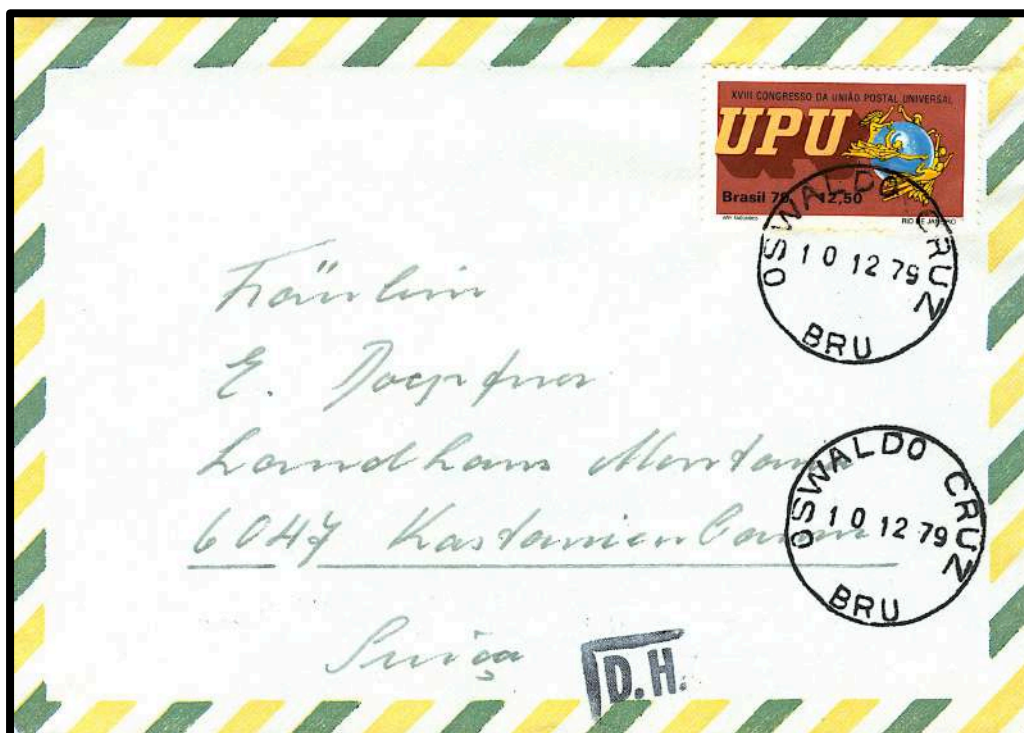 XVIII CONGRESSO DA UNIÃO POSTAL UNIVERSAL
UPU
Brasil 79 12,50
RIO DE JANEIRO
OSWALDO CRUZ
10 12 79
BRU
Fräulein
E. Doepfner
Landhaus Montana
6047 Kastanienbaum
Suiça
OSWALDO CRUZ
10 12 79
BRU
D.H.